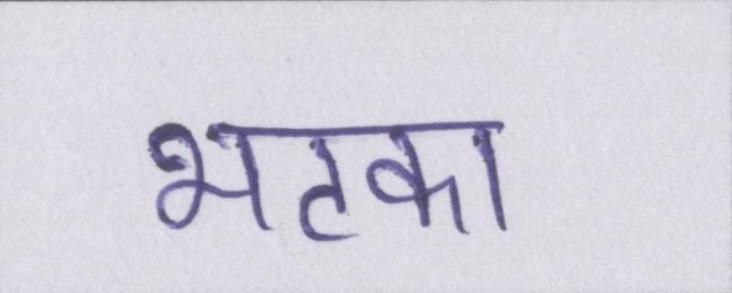 भटका